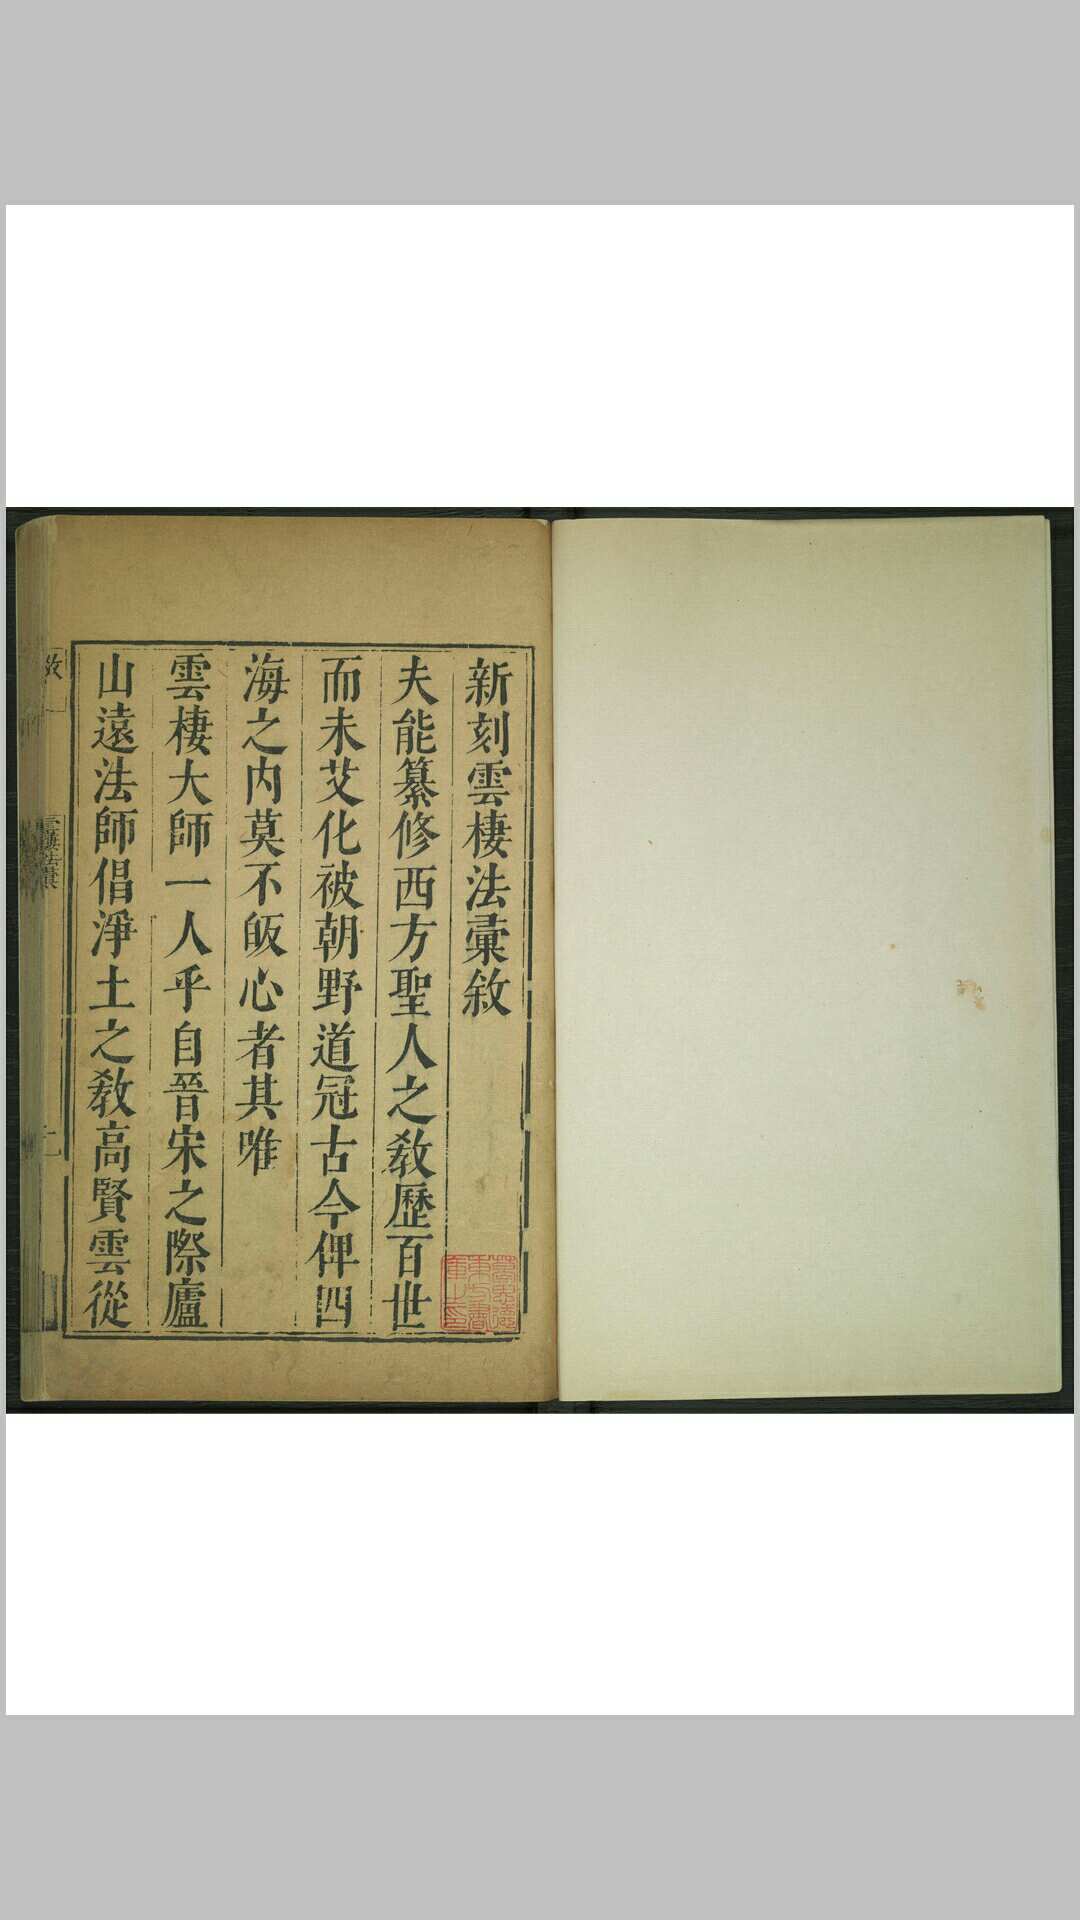 新刻雲棲法彚敘
夫能纂修西方聖人之教歷百世
而未艾化被朝野道冠古今俾四
海之内莫不皈心者其唯
雲棲大師一人乎自晉宋之際廬
山遠法師倡淨土之教高賢雲從
敘